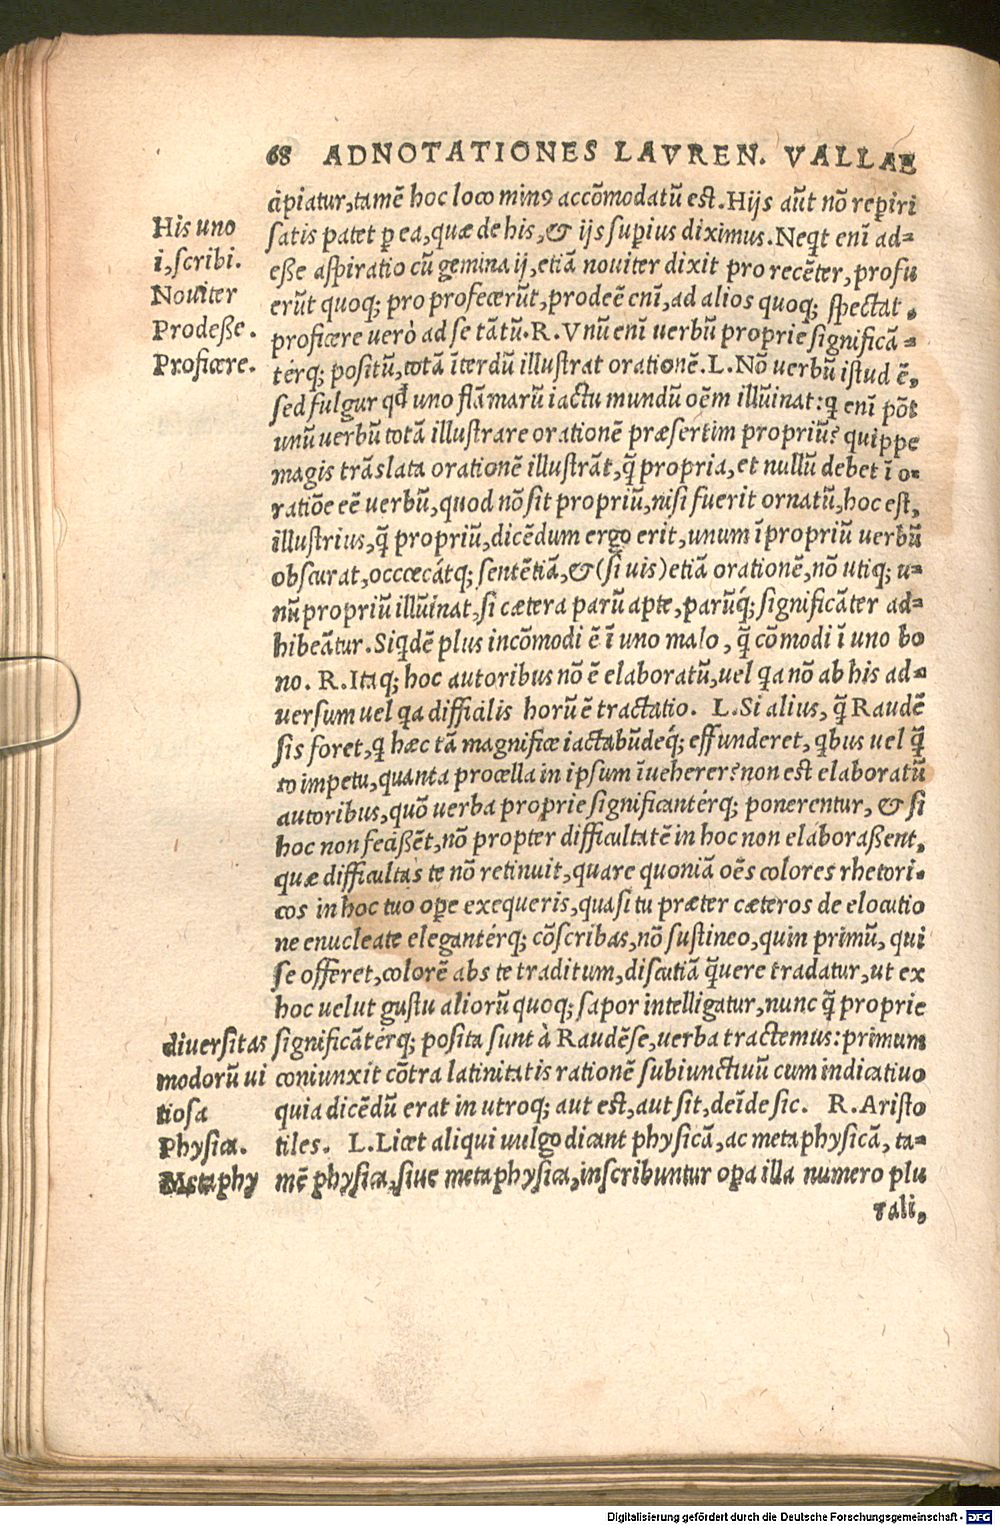 68 ADNOTATIONES LAVREN. VALLAE
cipiatur, tamē hoc loco minꝰ accōmodatū est. Hijs aūt nō reperiri
His uno
satis patet ꝑ ea, quæ de his, & ijs suꝑius diximus. Neqͥt enī ad-
i, scribi.
eße aspiratio cū gemina ij, etiā nouiter dixit pro recēter, profu
Nouiter
erūt quoqꝫ pro profecerūt, prodeē enī, ad alios quoqꝫ spectat,
Prodeße.
proficere verò ad se tātū. R. Vnū enī verbū proprie significā-
Proficere.
térqꝫ positū, totā īterdū illustrat orationē. L. Nō verbū istud ē,
sed fulgur qd̄ uno flāmarū iactu mundū oēm illūinat: q̄ enī pōt
unū verbū totā illustrare orationē præsertim propriū? quippe
magis trāslata orationē illustrāt, q̄ propria, et nullū debet ī o-
ratiōe eē verbū, quod nō sit propriū, nisi fuerit ornatū, hoc est,
illustrius, q̄ propriū, dicēdum ergo erit, unum īpropriū verbū
obscurat, occœcátqꝫ sentētiā, & (si uis) etiā orationē, nō utiqꝫ u-
nū propriū illūinat, si cætera parū apte, parūqꝫ significāter ad-
hibeātur. Siqͥdē plus incōmodi ē ī uno malo, q̄ cōmodi ī uno bo
no. R. Itaqꝫ hoc autoribus nō ē elaboratū, uel qͥa nō ab his ad-
uersum uel qͥa difficilis horū ē tractatio. L. Si alius, q̄ Raudē
sis foret, qͥ hæc tā magnifice iactabūdeqꝫ effunderet, qͥbus uel q̄
to impetu, quanta procella in ipsum īueherer? non est elaboratū
autoribus, quō verba proprie significantérqꝫ ponerentur, & si
hoc non fecißēt, nō propter difficultatē in hoc non elaboraßent,
quæ difficultas te nō retinuit, quare quoniā oēs colores rhetori-
cos in hoc tuo oꝑe exequeris, quasi tu præter cæteros de elocutio
ne enucleate elegantérqꝫ cōscribas, nō sustineo, quin primū, qui
se offeret, colorē abs te traditum, discutiā q̄uere tradatur, ut ex
hoc uelut gustu aliorū quoqꝫ sapor intelligatur, nunc q̄ proprie
diuersitas
significātérqꝫ posita sunt à Raudēse, verba tractemus: primum
modorū ui
coniunxit cōtra latinitatis rationē subiunctiuū cum indicatiuo
tiosa
quia dicēdū erat in utroqꝫ aut est, aut sit, deīde sic. R. Aristo
Physica.
tiles. L. Licet aliqui uulgo dicant physicā, ac metaphysicā, ta-
Metaphy
mē physica, siue metaphysica, inscribuntur oꝑa illa numero plu
rali,
Digitalisierung gefördert durch die Deutsche Forschungsgemeinschaft - DFG